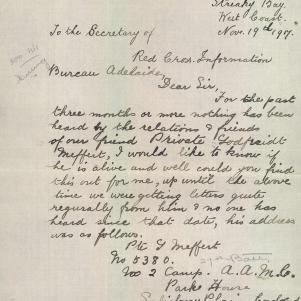 Streaky Bay.
West Coast.
Nov. 19th 1917.
To the Secretary of
Red Cross Information
Bureau Adelaide,
Dear Sir,
For the past
three months or more nothing has been
heard by the relations & friends
of our friend Private Godfreidt
Meffert, I would like to know if
he is alive and well could you find
this out for me, up until the above
time we were getting letters quite
regurally from him & no one has
heard since that date, his address
was as follows.
Pte G Meffert
No 5380.
No 2 Camp. A.A.M.C.
Parke House